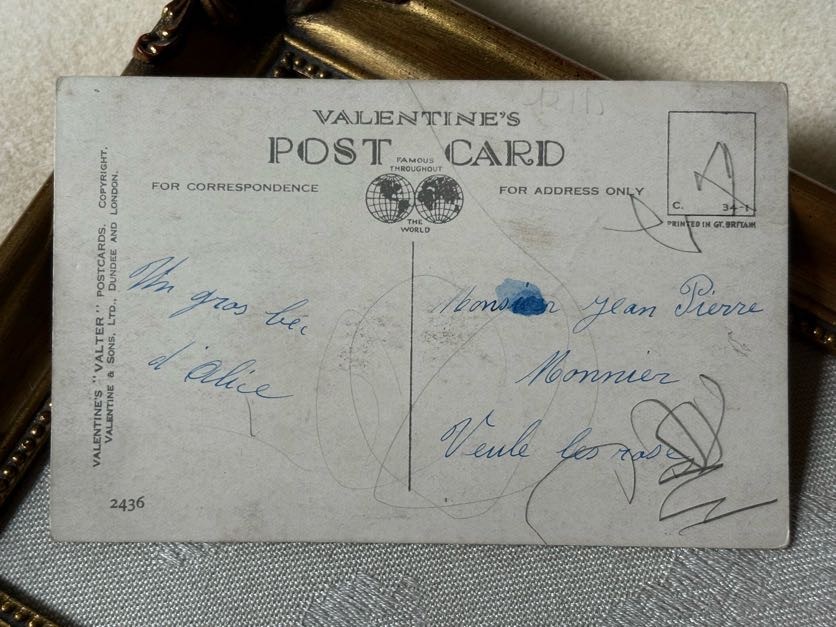 VALENTINE'S
POST CARD
FAMOUS
THROUGHOUT
THE
WORLD
FOR CORRESPONDENCE
FOR ADDRESS ONLY
C. 34-1
PRINTED IN GT. BRITAIN
VALENTINE'S "VALTER" POSTCARDS. COPYRIGHT.
VALENTINE & SONS, LTD., DUNDEE AND LONDON.
Un gros bec
d'Alice
Monsieur Jean Pierre
Monnier
Veule les rose
2436